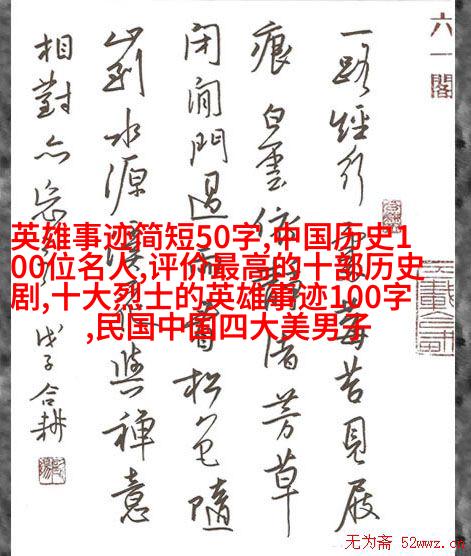 六一閣
一路經行莓苔見屐
痕白雲依渚芳草
閉閒門過看松色隨
山到水源溪與禪意
相對亦忘戊子合耕
英雄事迹简短50字,中国历史1
00位名人,评价最高的十部历史
剧,十大烈士的英雄事迹100字
,民国中国四大美男子
无为斋 52wwz.cn